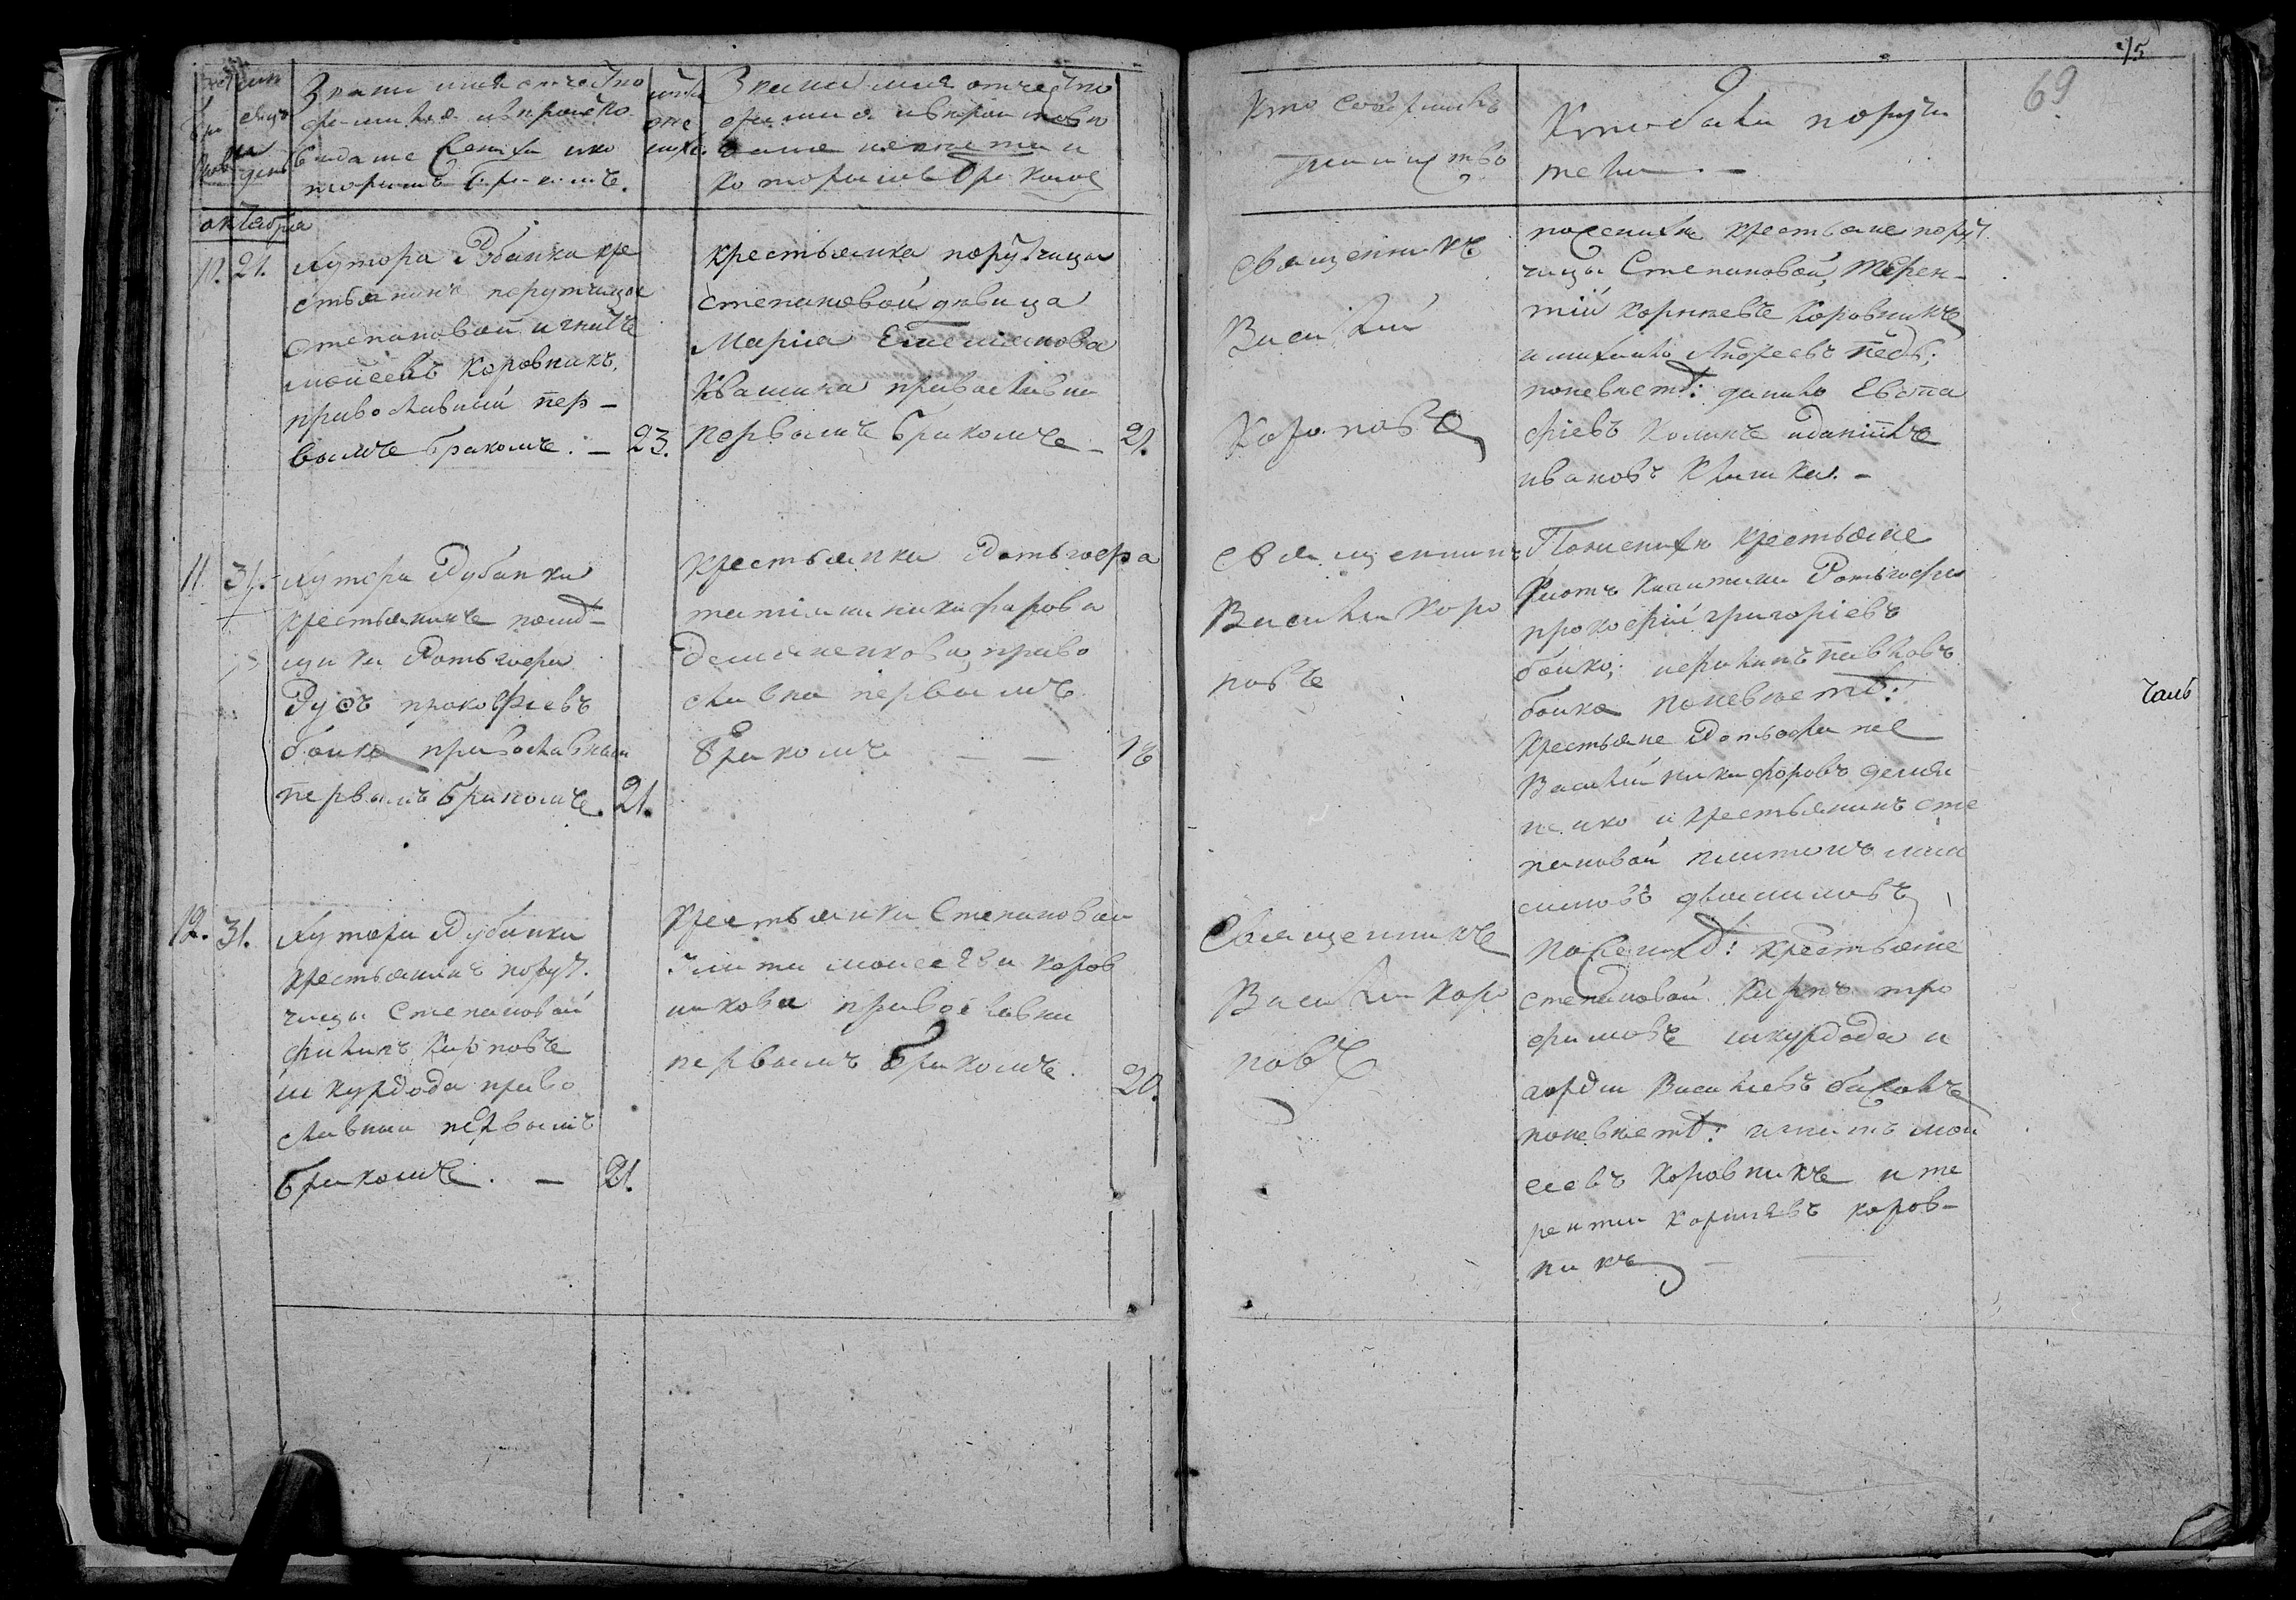 75
69
Званіе имя отчество
фамилія и вѣроиспо
веданіе жениха и ко
торымъ бракомъ.
Званіе имя отчество
фамилія и вѣроиспове
даніе невесты и
которымъ бракомъ
Кто совершалъ
таинство
Кто были поручи
тели. —
октября
10. 21.
Хутора Дубанка кре
стьянинъ порутчицы
Степановой игнатъ
моисеевъ Коровникъ,
православный пер-
вымъ бракомъ. — 23.
крестьянка порутчицы
степановой девица
Марія Емельянова
Квашина православна
первымъ бракомъ — 21.
Священникъ
Василій
Короповъ
по женихѣ крестьяне порут
чицы Степановой, Терен-
тій Корнѣевъ Коровникъ
и михаилъ Андреевъ
по невѣстѣ: данило Евста
фіевъ и данiилъ
ивановъ Клишка. —
11 31.
Хутора Дубанка
крестьянинъ помѣ-
щика Ротьгофа
прокофіевъ
бойко православный
первымъ бракомъ. 21.
Крестьянка Ротьгофа
татіяна никифорова
Демяненкова, право
славна первымъ
бракомъ — — 18
Священникъ
Василій Коро
повъ
По женихѣ крестьяне
Капитана Ротьгофа
прокофій григоріевъ
бойко; и павловъ
бойко по невѣстѣ:
крестьяне Ротьгофа
Василій никифоровъ демя
ненко и крестьянинъ сте
пановой
симовъ
чаль
12. 31.
Хутора Дубанка
крестьянинъ порут.
чицы Степановой
филипъ Карповъ
шкурдода право
славный первымъ
бракомъ. — 21.
Крестьянка Степановой
моисеева коров
никова православна
первымъ бракомъ. 20.
Священникъ
Василій Коро
повъ
По женихѣ: крестьяне
степановой Карпъ тро
фимовъ шкурдода и
гордій Васильевъ
по невѣстѣ: игнатъ мои
сеевъ Коровникъ и те
рентій корнѣевъ коров-
никъ —